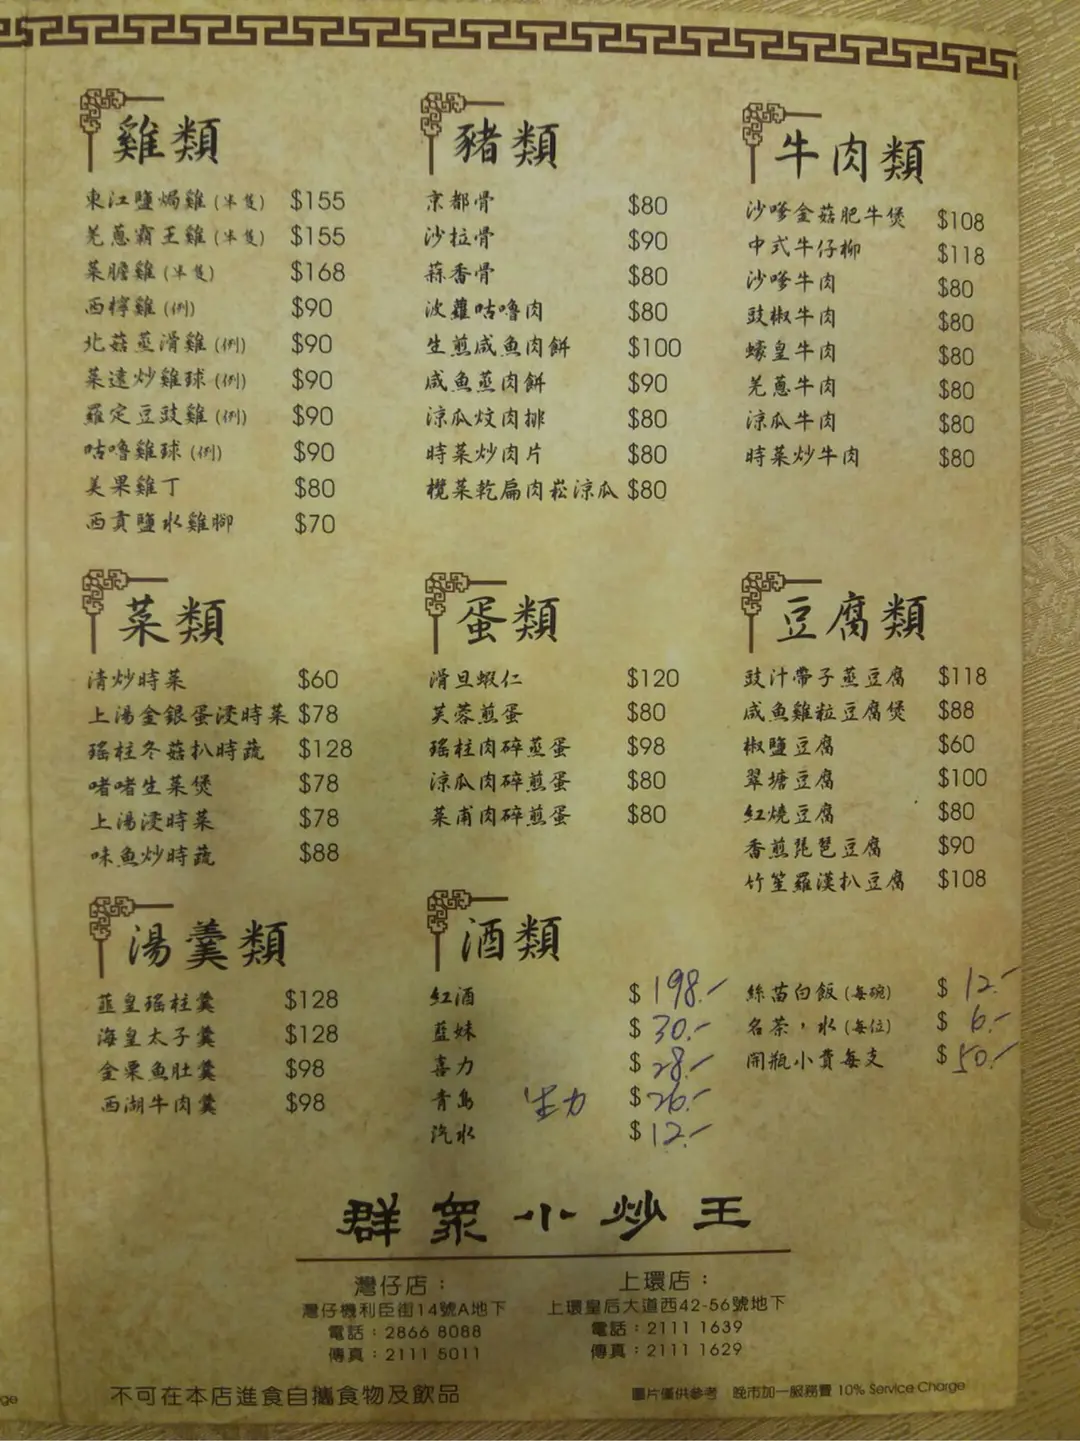 雞類
東江鹽焗雞(半隻) $155
羌蔥霸王雞(半隻) $155
菜膽雞(半隻) $168
西檸雞(例) $90
北菇蒸滑雞(例) $90
菜遠炒雞球(例) $90
羅定豆豉雞(例) $90
咕嚕雞球(例) $90
美果雞丁 $80
西貢鹽水雞腳 $70
豬類
京都骨 $80
沙拉骨 $90
蒜香骨 $80
波蘿咕嚕肉 $80
生煎咸魚肉餅 $100
咸魚蒸肉餅 $90
涼瓜炆肉排 $80
時菜炒肉片 $80
欖菜乾扁肉崧涼瓜 $80
牛肉類
沙嗲金菇肥牛煲 $108
中式牛仔柳 $118
沙嗲牛肉 $80
豉椒牛肉 $80
蠔皇牛肉 $80
羌蔥牛肉 $80
涼瓜牛肉 $80
時菜炒牛肉 $80
菜類
清炒時菜 $60
上湯金銀蛋浸時菜 $78
瑤柱冬菇扒時蔬 $128
啫啫生菜煲 $78
上湯浸時菜 $78
味魚炒時蔬 $88
蛋類
滑旦蝦仁 $120
芙蓉煎蛋 $80
瑤柱肉碎蒸蛋 $98
涼瓜肉碎煎蛋 $80
菜甫肉碎煎蛋 $80
豆腐類
豉汁帶子蒸豆腐 $118
咸魚雞粒豆腐煲 $88
椒鹽豆腐 $60
翠塘豆腐 $100
紅燒豆腐 $80
香煎琵琶豆腐 $90
竹笙羅漢扒豆腐 $108
湯羹類
韮皇瑤柱羹 $128
海皇太子羹 $128
金粟魚肚羹 $98
西湖牛肉羹 $98
酒類
紅酒 $198.-
藍妹 $30.-
喜力 $28.-
青島 生力 $26.-
汽水 $12.-
絲苗白飯(每碗) $12.-
名茶，水(每位) $6.-
開瓶小費每支 $50.-
群眾小炒王
灣仔店：
灣仔機利臣街14號A地下
電話：2866 8088
傳真：2111 5011
上環店：
上環皇后大道西42-56號地下
電話：2111 1639
傳真：2111 1629
不可在本店進食自攜食物及飲品
圖片僅供參考 晚市加一服務費 10% Service Charge
ge